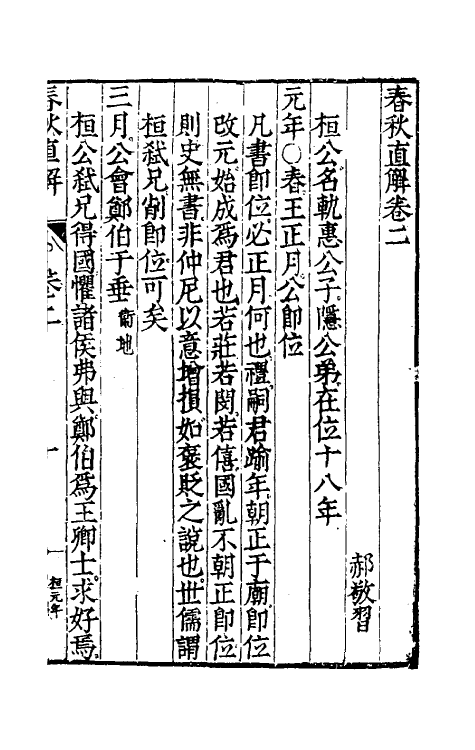 春秋直解卷二
郝敬習
桓公名軌惠公子隱公弟在位十八年
元年○春王正月公即位
凡書即位必正月何也禮嗣君踰年朝正于廟即位
改元始成爲君也若莊若閔若僖國亂不朝正即位
則史無書非仲尼以意增損如褒貶之說也世儒謂
桓弒兄削即位可矣
三月公會鄭伯于垂衛地
桓公弒兄得國懼諸侯弗與鄭伯爲王卿士求好焉
春秋直解 卷二 一 桓元年